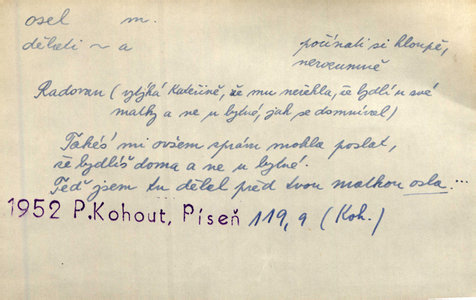 osel m.
dělati ~ a počínati si hloupě,
nerozumně
Radovan (vytýká Kateřině, že mu neřekla, že bydlí u své
matky a ne u bytné, jak se domníval)
Takés' mi ovšem zprám mohla poslat,
že bydlíš doma a ne u bytné.
Teď jsem tu dělal před tvou matkou osla...
1952 P.Kohout, Píseň 119, 9 (Koh.)